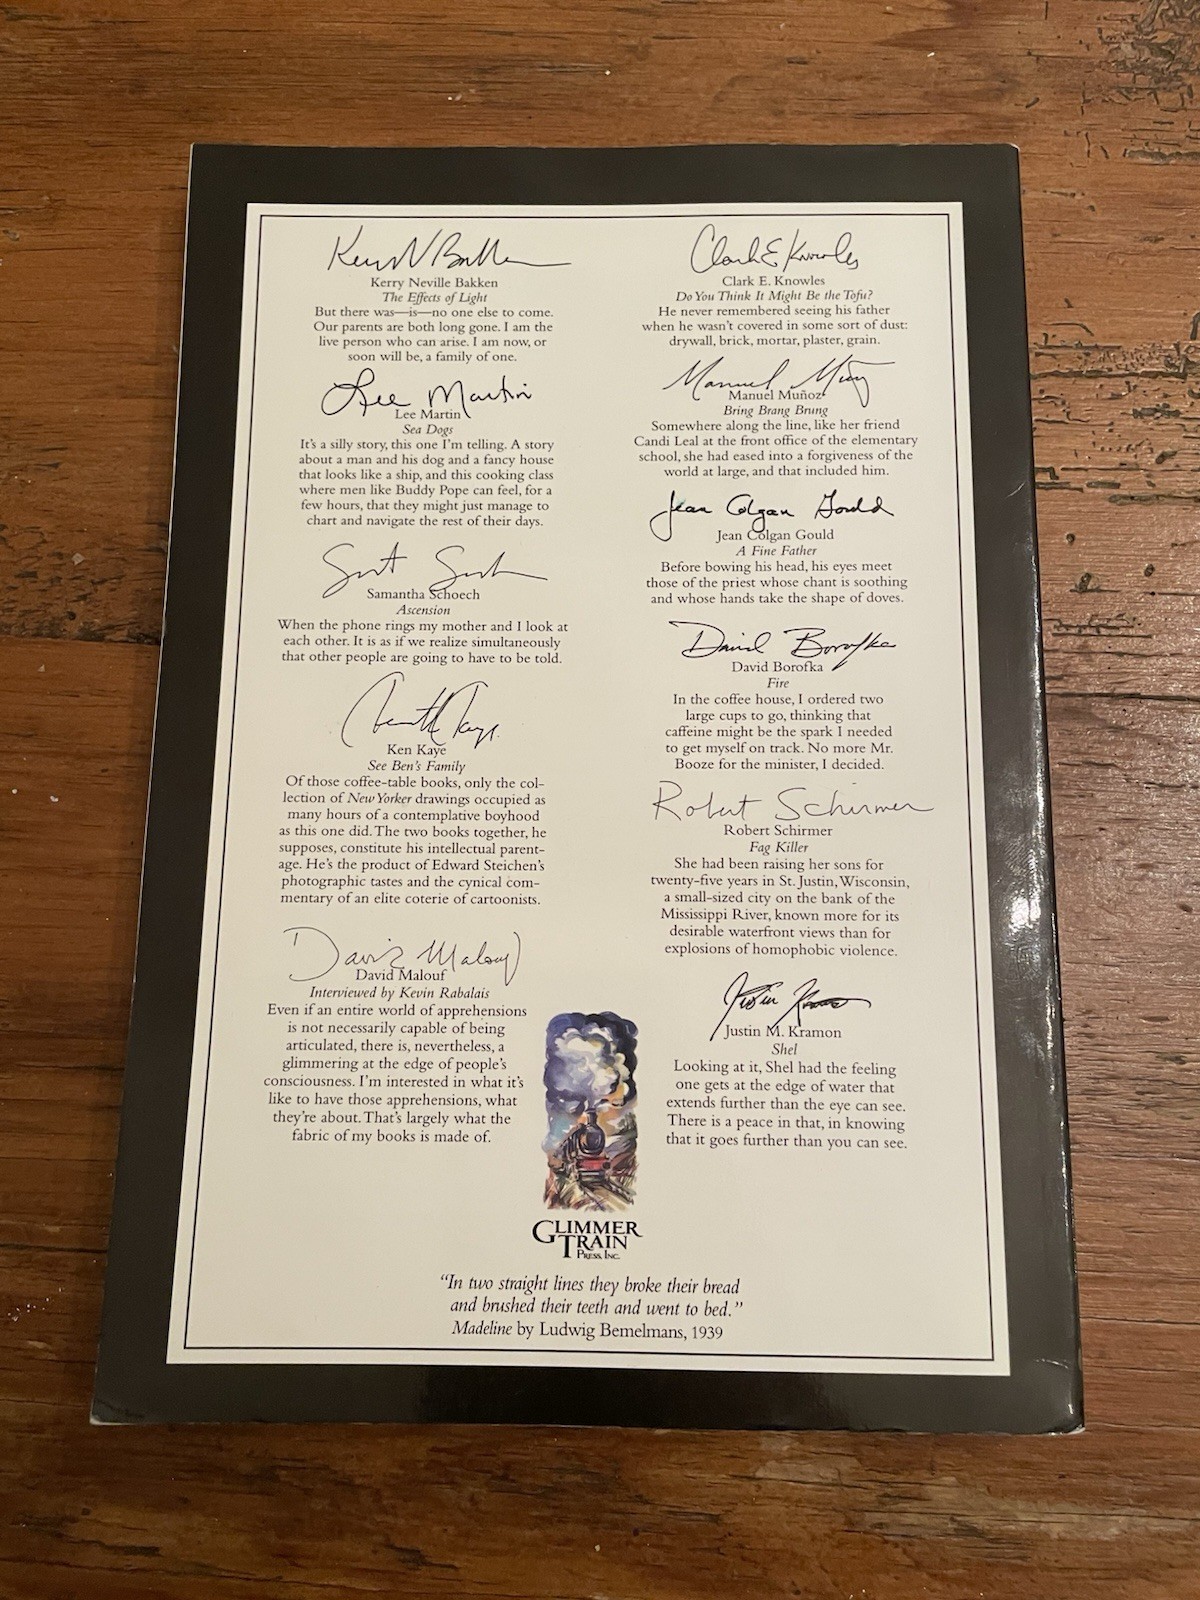 Kerry N Bakken
Kerry Neville Bakken
The Effects of Light
But there was—is—no one else to come.
Our parents are both long gone. I am the
live person who can arise. I am now, or
soon will be, a family of one.
Lee Martin
Lee Martin
Sea Dogs
It's a silly story, this one I'm telling. A story
about a man and his dog and a fancy house
that looks like a ship, and this cooking class
where men like Buddy Pope can feel, for a
few hours, that they might just manage to
chart and navigate the rest of their days.
Samantha Schoech
Ascension
When the phone rings my mother and I look at
each other. It is as if we realize simultaneously
that other people are going to have to be told.
Kenneth Kaye
Ken Kaye
See Ben's Family
Of those coffee-table books, only the col-
lection of New Yorker drawings occupied as
many hours of a contemplative boyhood
as this one did. The two books together, he
supposes, constitute his intellectual parent-
age. He's the product of Edward Steichen's
photographic tastes and the cynical com-
mentary of an elite coterie of cartoonists.
David Malouf
David Malouf
Interviewed by Kevin Rabalais
Even if an entire world of apprehensions
is not necessarily capable of being
articulated, there is, nevertheless, a
glimmering at the edge of people's
consciousness. I'm interested in what it's
like to have those apprehensions, what
they're about. That's largely what the
fabric of my books is made of.
Clark E Knowles
Clark E. Knowles
Do You Think It Might Be the Tofu?
He never remembered seeing his father
when he wasn't covered in some sort of dust:
drywall, brick, mortar, plaster, grain.
Manuel Muñoz
Manuel Muñoz
Bring Brang Brung
Somewhere along the line, like her friend
Candi Leal at the front office of the elementary
school, she had eased into a forgiveness of the
world at large, and that included him.
Jean Colgan Gould
Jean Colgan Gould
A Fine Father
Before bowing his head, his eyes meet
those of the priest whose chant is soothing
and whose hands take the shape of doves.
David Borofka
David Borofka
Fire
In the coffee house, I ordered two
large cups to go, thinking that
caffeine might be the spark I needed
to get myself on track. No more Mr.
Booze for the minister, I decided.
Robert Schirmer
Robert Schirmer
Fag Killer
She had been raising her sons for
twenty-five years in St. Justin, Wisconsin,
a small-sized city on the bank of the
Mississippi River, known more for its
desirable waterfront views than for
explosions of homophobic violence.
Justin Kramon
Justin M. Kramon
Shel
Looking at it, Shel had the feeling
one gets at the edge of water that
extends further than the eye can see.
There is a peace in that, in knowing
that it goes further than you can see.
GLIMMER
TRAIN
PRESS, INC.
"In two straight lines they broke their bread
and brushed their teeth and went to bed."
Madeline by Ludwig Bemelmans, 1939